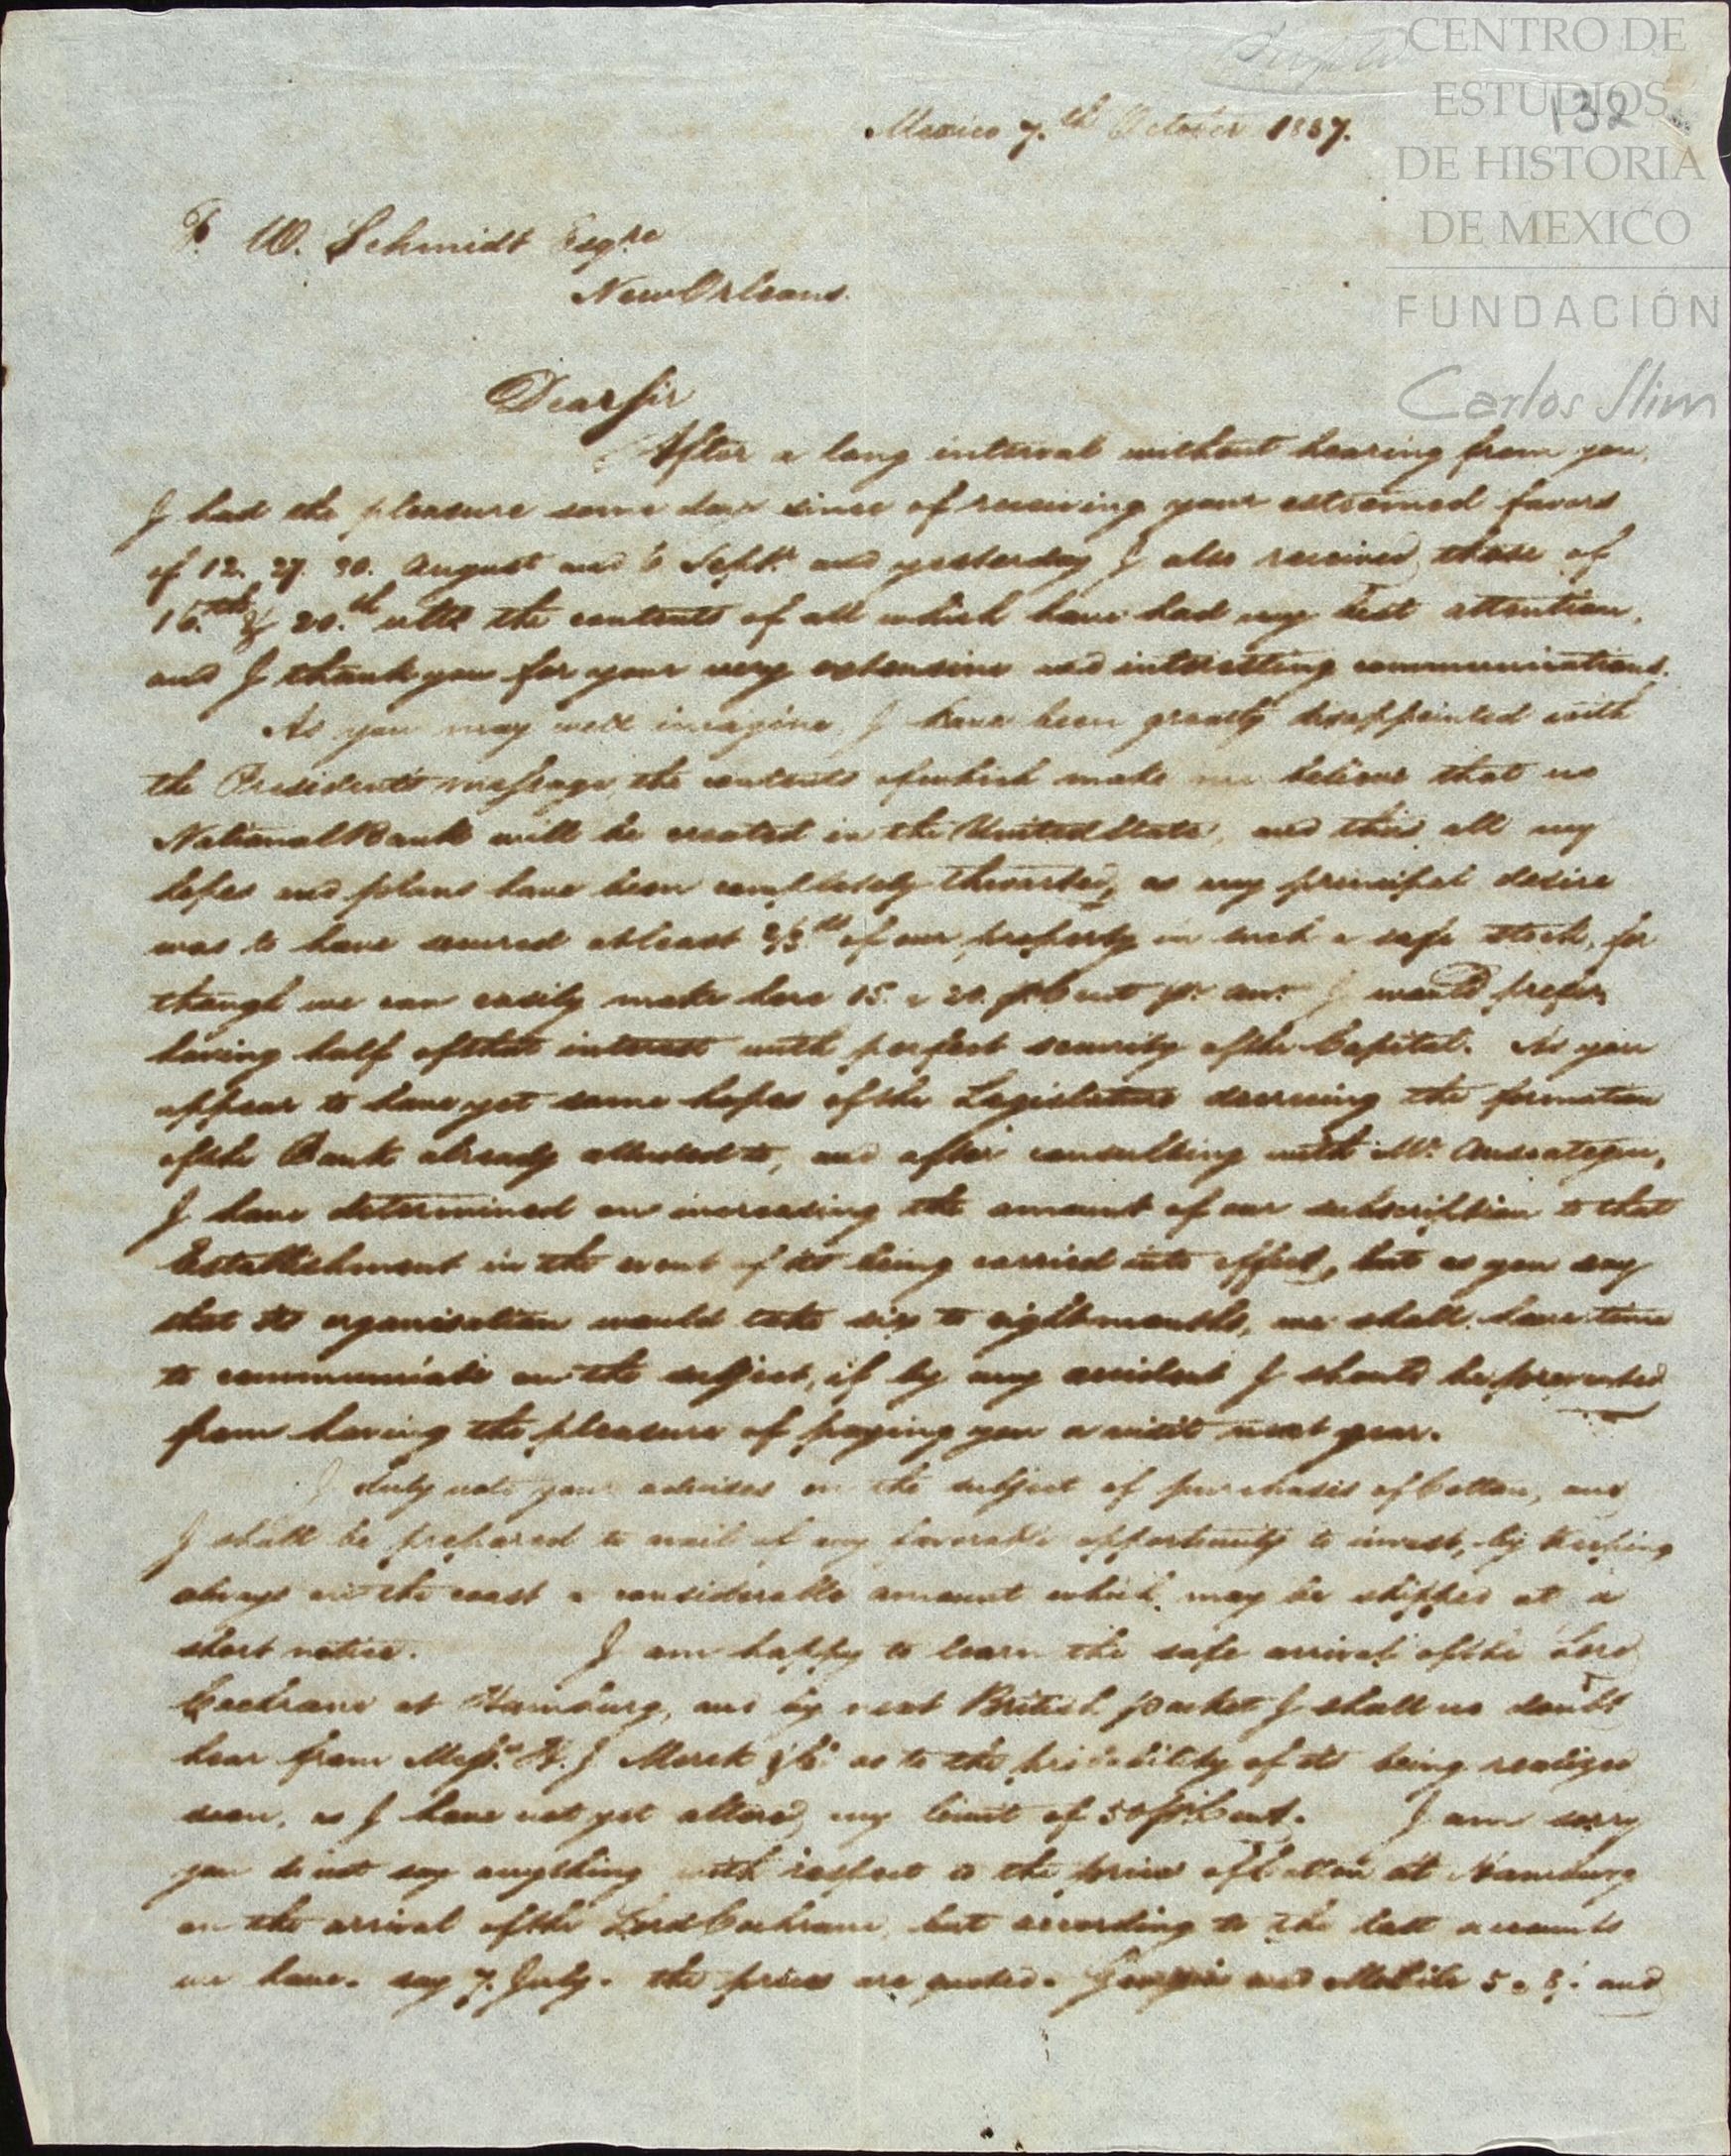 CENTRO DE
ESTUDIOS
DE HISTORIA
DE MEXICO
FUNDACIÓN
Carlos Slim
132
Mexico 7.th October 1837.
F. W. Schmidt Esqre
New Orleans.
Dear Sir
After a long interval without hearing from you,
I had the pleasure some days since of receiving your esteemed favors
of 12. 27. 30. August and 6 Septr. and yesterday I also received those of
16.th & 20.th ulto the contents of all which have had my best attention,
and I thank you for your very extensive and interesting communications.
As you may well imagine I have been greatly disappointed with
the President's message, the contents of which make me believe that no
National Bank will be created in the United State, and thus all my
hopes and plans have been completely thwarted, as my principal desire
was to have secured at least 2/3ds of our property in such a safe stock, for
though we can easily make here 15. a 20. pr Cent pr. ann. I would prefer
having half of that interest with perfect security of the Capital. As you
appear to have yet some hopes of the Legislature decreeing the formation
of the Bank already alluded to, and after consulting with Mr.
I have determined on increasing the amount of our subscription to that
Establishment in the event of its being carried into effect, but as you say
that its organisation would take six to eight months, we shall have time
to communicate on the subject, if by any accident I should be prevented
from having the pleasure of paying you a visit next year.
I duly note your advises on the subject of purchases of Cotton, and
I shall be prepared to avail of any favorable opportunity to invest, by keeping
always on the coast a considerable amount which may be shipped at a
short notice. I am happy to learn the safe arrival of the Lord
Cochrane at Hamburg, and by next British packet I shall no doubt
hear from Messrs. H. J. Merck & Co. as to the probability of its being realized
soon, as I have not yet altered my limit of 50 pr Cent. I am sorry
you do not say anything with respect to the price of Cotton at Hamburg
on the arrival of the Lord Cochrane, but according to the last accounts
we have. say 7. July. the prices are quoted. Georgia and Mobile 5 a 8. and